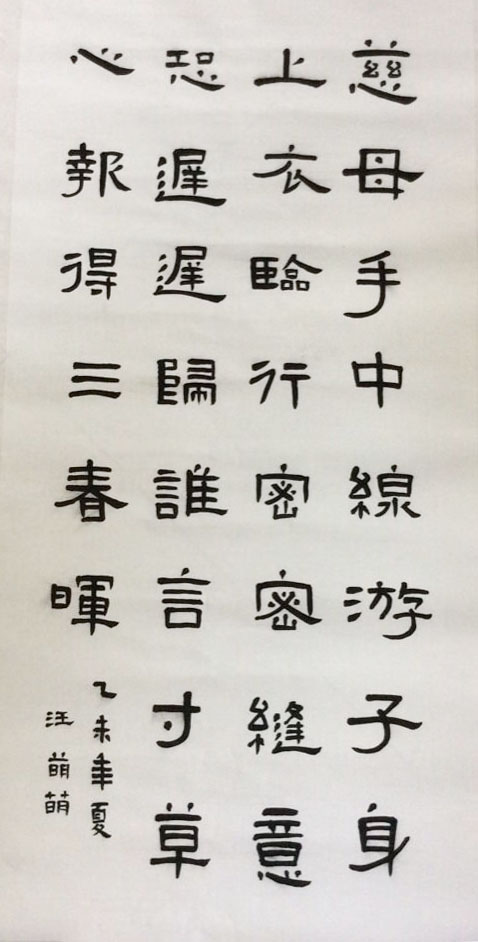 慈母手中線游子身
上衣臨行密密縫意
恐遲遲歸誰言寸草
心報得三春暉
乙未年夏
汪萌萌